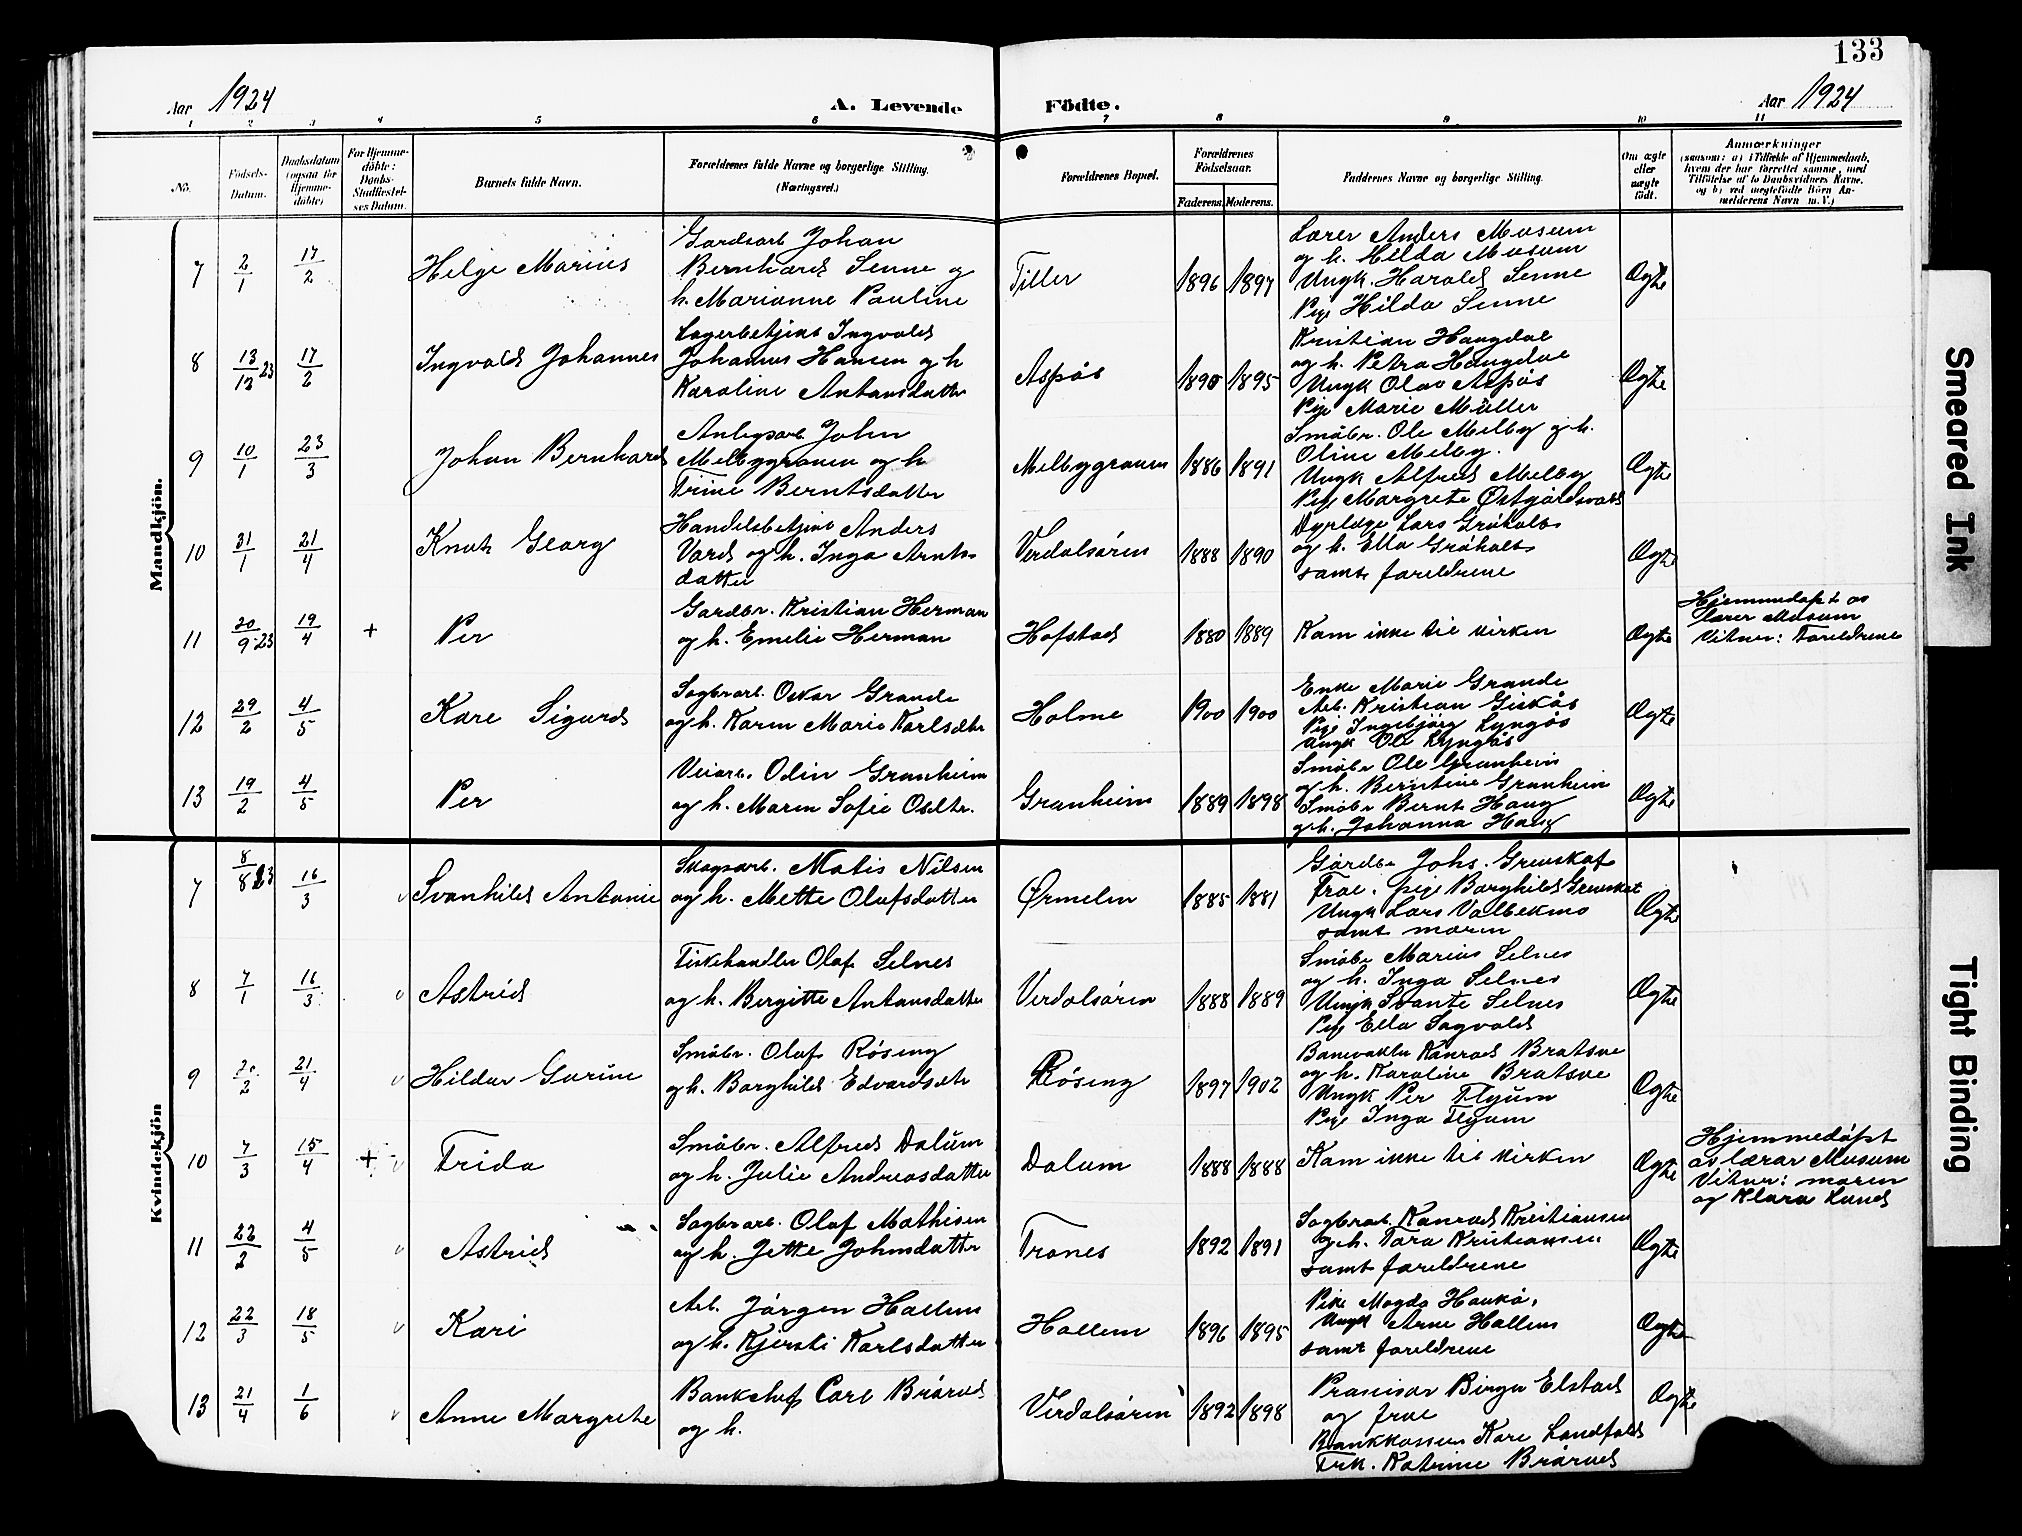 133
Aar 1924
A. Levende Födte.
Aar 1924
1 2 3 4 5 6 7 8 9 10 11
No.
Födsels-Datum.
Daabsdatum (ogsaa for Hjemme-döbte)
For Hjemme-döbte: Daabs-Stadfæstel-ses Datum.
Barnets fulde Navn.
Forældrenes fulde Navne og borgerlige Stilling. (Næringsvei.)
Forældrenes Bopæl.
Forældrenes Födselsaar.
Faderens. Moderens.
Faddernes Navne og borgerlige Stilling.
Om ægte eller uægte födt.
Anmærkninger
(saasom: a) i Tilfælde af Hjemmedaab, hvem der har forrettet samme, med Tilföielse af to Daabsvidners Navne, og b) ved uægtefödte Börn An-melderens Navn m. V.)
Mandkjön.
7 2/1 17/2 Helge Marius
Gardsarb Johan
Bernhard Senne og
h. Marianne Pauline
Tiller 1896 1897
Lærer Anders Musum
og h. Hilda Musum
Ungk Harald Senne
Pige Hilda Senne
Ægte
8 13/12 23 17/2 Ingvald Johannes
Lagerbetjent Ingvald
Johannes Hansen og h
Karoline Antonsdatter
Aspås 1895
Kristian Haugdal
og h. Petra Haugdal
Ungk Olav Aspås
Pige Marie Müller
Ægte
9 10/1 23/3 Johan Bernhard
Anlegsarb John
Melbygraven og h
Trine Berntsdatter
Melbygraven 1886 1891
Småbr. Ole Melby og h.
Oline Melby.
Ungk Alfred Melby
Pige Margrete Østgårdsvald
Ægte
10 31/1 21/4 Knut Georg
Handelsbetjent Anders
Vard og h. Inga Arnts-
datter
Verdalsøren 1888 1890
Dyrlæge Lars Gråholt
og h. Ella Gråholt
samt foreldrene
Ægte
11 20/9-23 19/4 + Per
Gardbr. Kristian Herman
og h. Emelie Herman
Hofstad 1880 1889
Kom ikke til kirken
Ægte
Hjemmedøpt av
lærer Musum
Vitner: Foreldrene
12 29/2 4/5 Kåre Sigurd
Sagbrarb. Oskar Grande
og h. Karen Marie Karlsdtr
Holme 1900 1900
Enke Marie Grande
Arb. Kristian Giskås
Pige Ingebjørg Lyngås
Ungk Ole Lyngås
Ægte
13 19/2 4/5 Per
Veiarb. Odin Granheim
og h. Maren Sofie Olsdtr.
Granheim 1889 1898
Småbr Ole Granheim
og h. Berntine Granheim
Småbr Bernt Haug
og h. Johanna Haug
Ægte
Kvindekjön
7 8/8 23 16/3 v Svanhild Antonie
Skogsarb. Matis Nilsen
og h. Mette Olufsdatter
Ørmelen 1885 1881
Gårdbr Johs. Grenskaf
Frol. pige Borghild Grenskaf
Ungk Lars Valbekmo
samt moren
Ægte
8 7/1 16/3 v Astrid
Fiskehandler Olaf Selnes
og h. Bergitte Antonsdatter
Verdalsøren 1888 1889
Småbr Marius Selnes
og h. Inga Selnes
Ungk Svante Selnes
Pige Ella Sagvold
Ægte
9 20/2 21/4 v Hildur Gurine
Småbr. Olaf Røsing
og h. Borghild Edvardsdtr
Røsing 1897 1902
Banevakter Konrad Bratsve
og h. Karoline Bratsve
Ungk Per Flyum
Pige Inga Flyum
Ægte
10 7/3 15/4 + v Frida
Småbr. Alfred Dalum
og h. Julie Andreasdatter
Dalum 1888 1888
Kom ikke til kirken
Ægte
Hjemmedøpt
av lærar Musum
Vitner: moren
og Klara Lund
11 22/2 4/5 v Astrid
Sagbrarb. Olaf Mathisen
og h. Jette Johnsdatter
Trones 1892 1891
Sagbrarb. Konrad Kristiansen
og h. Tora Kristiansen
samt foreldrene
Ægte
12 22/3 18/5 v Kari
Arb. Jørgen Hallem
og h. Kjersti Karlsdatter
Hallem 1896 1895
Pike Magda Haukå,
Ungk Arne Hallem
samt foreldrene
Ægte
13 21/4 1/6 v Anne Margrete
Bankchef Carl Brårud
og h.
Verdalsøren 1892 1898
Provisor Birger Elstad
og frue
Bankkasserer Kåre Landfald
Frk. Katrine Brårud
Ægte
Smeared Ink
Tight Binding